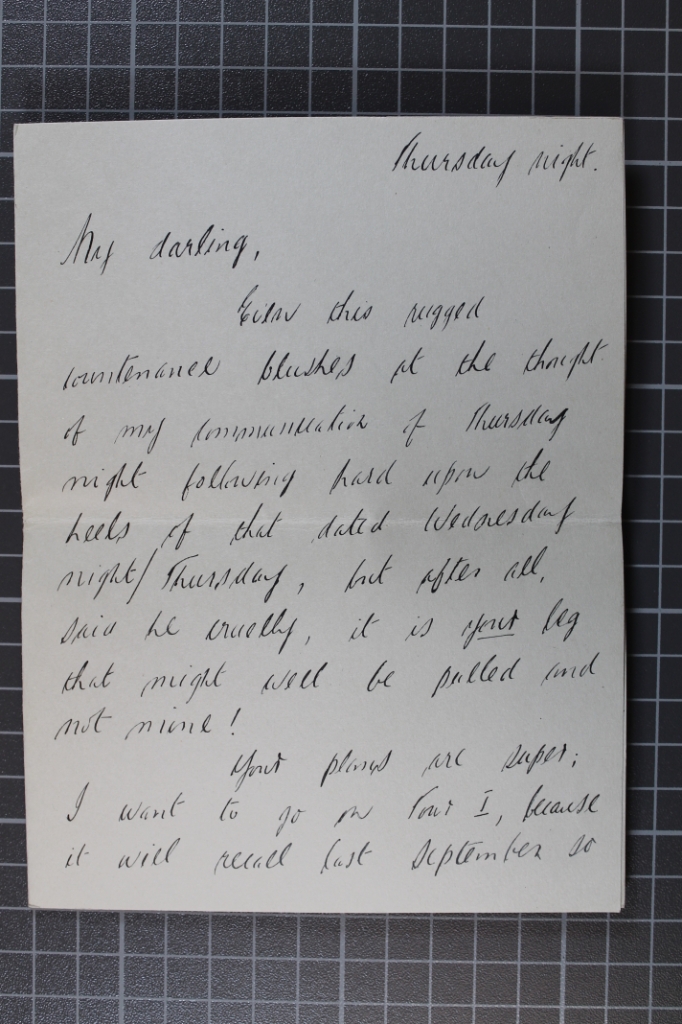 Thursday night.
My darling,
Even this rugged
countenance blushes at the thought
of my communication of Thursday
night following hard upon the
heels of that dated Wednesday
night/Thursday, but after all,
said he cruelly, it is your leg
that might well be pulled and
not mine!
Your plans are super;
I want to go on Tour I, because
it will recall last September so